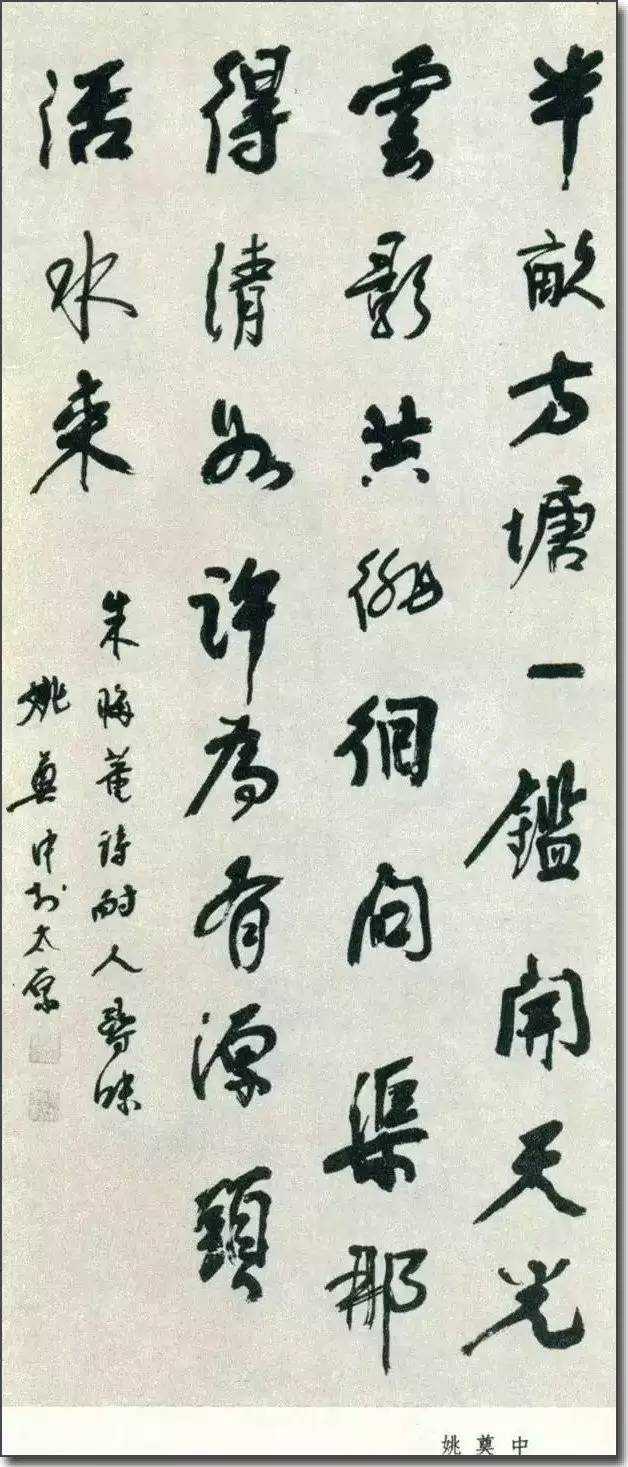 半畝方塘一鑑開天光
雲影共徘徊問渠那
得清如許為有源頭
活水来
朱晦菴詩耐人尋味
姚奠中於太原
姚奠中